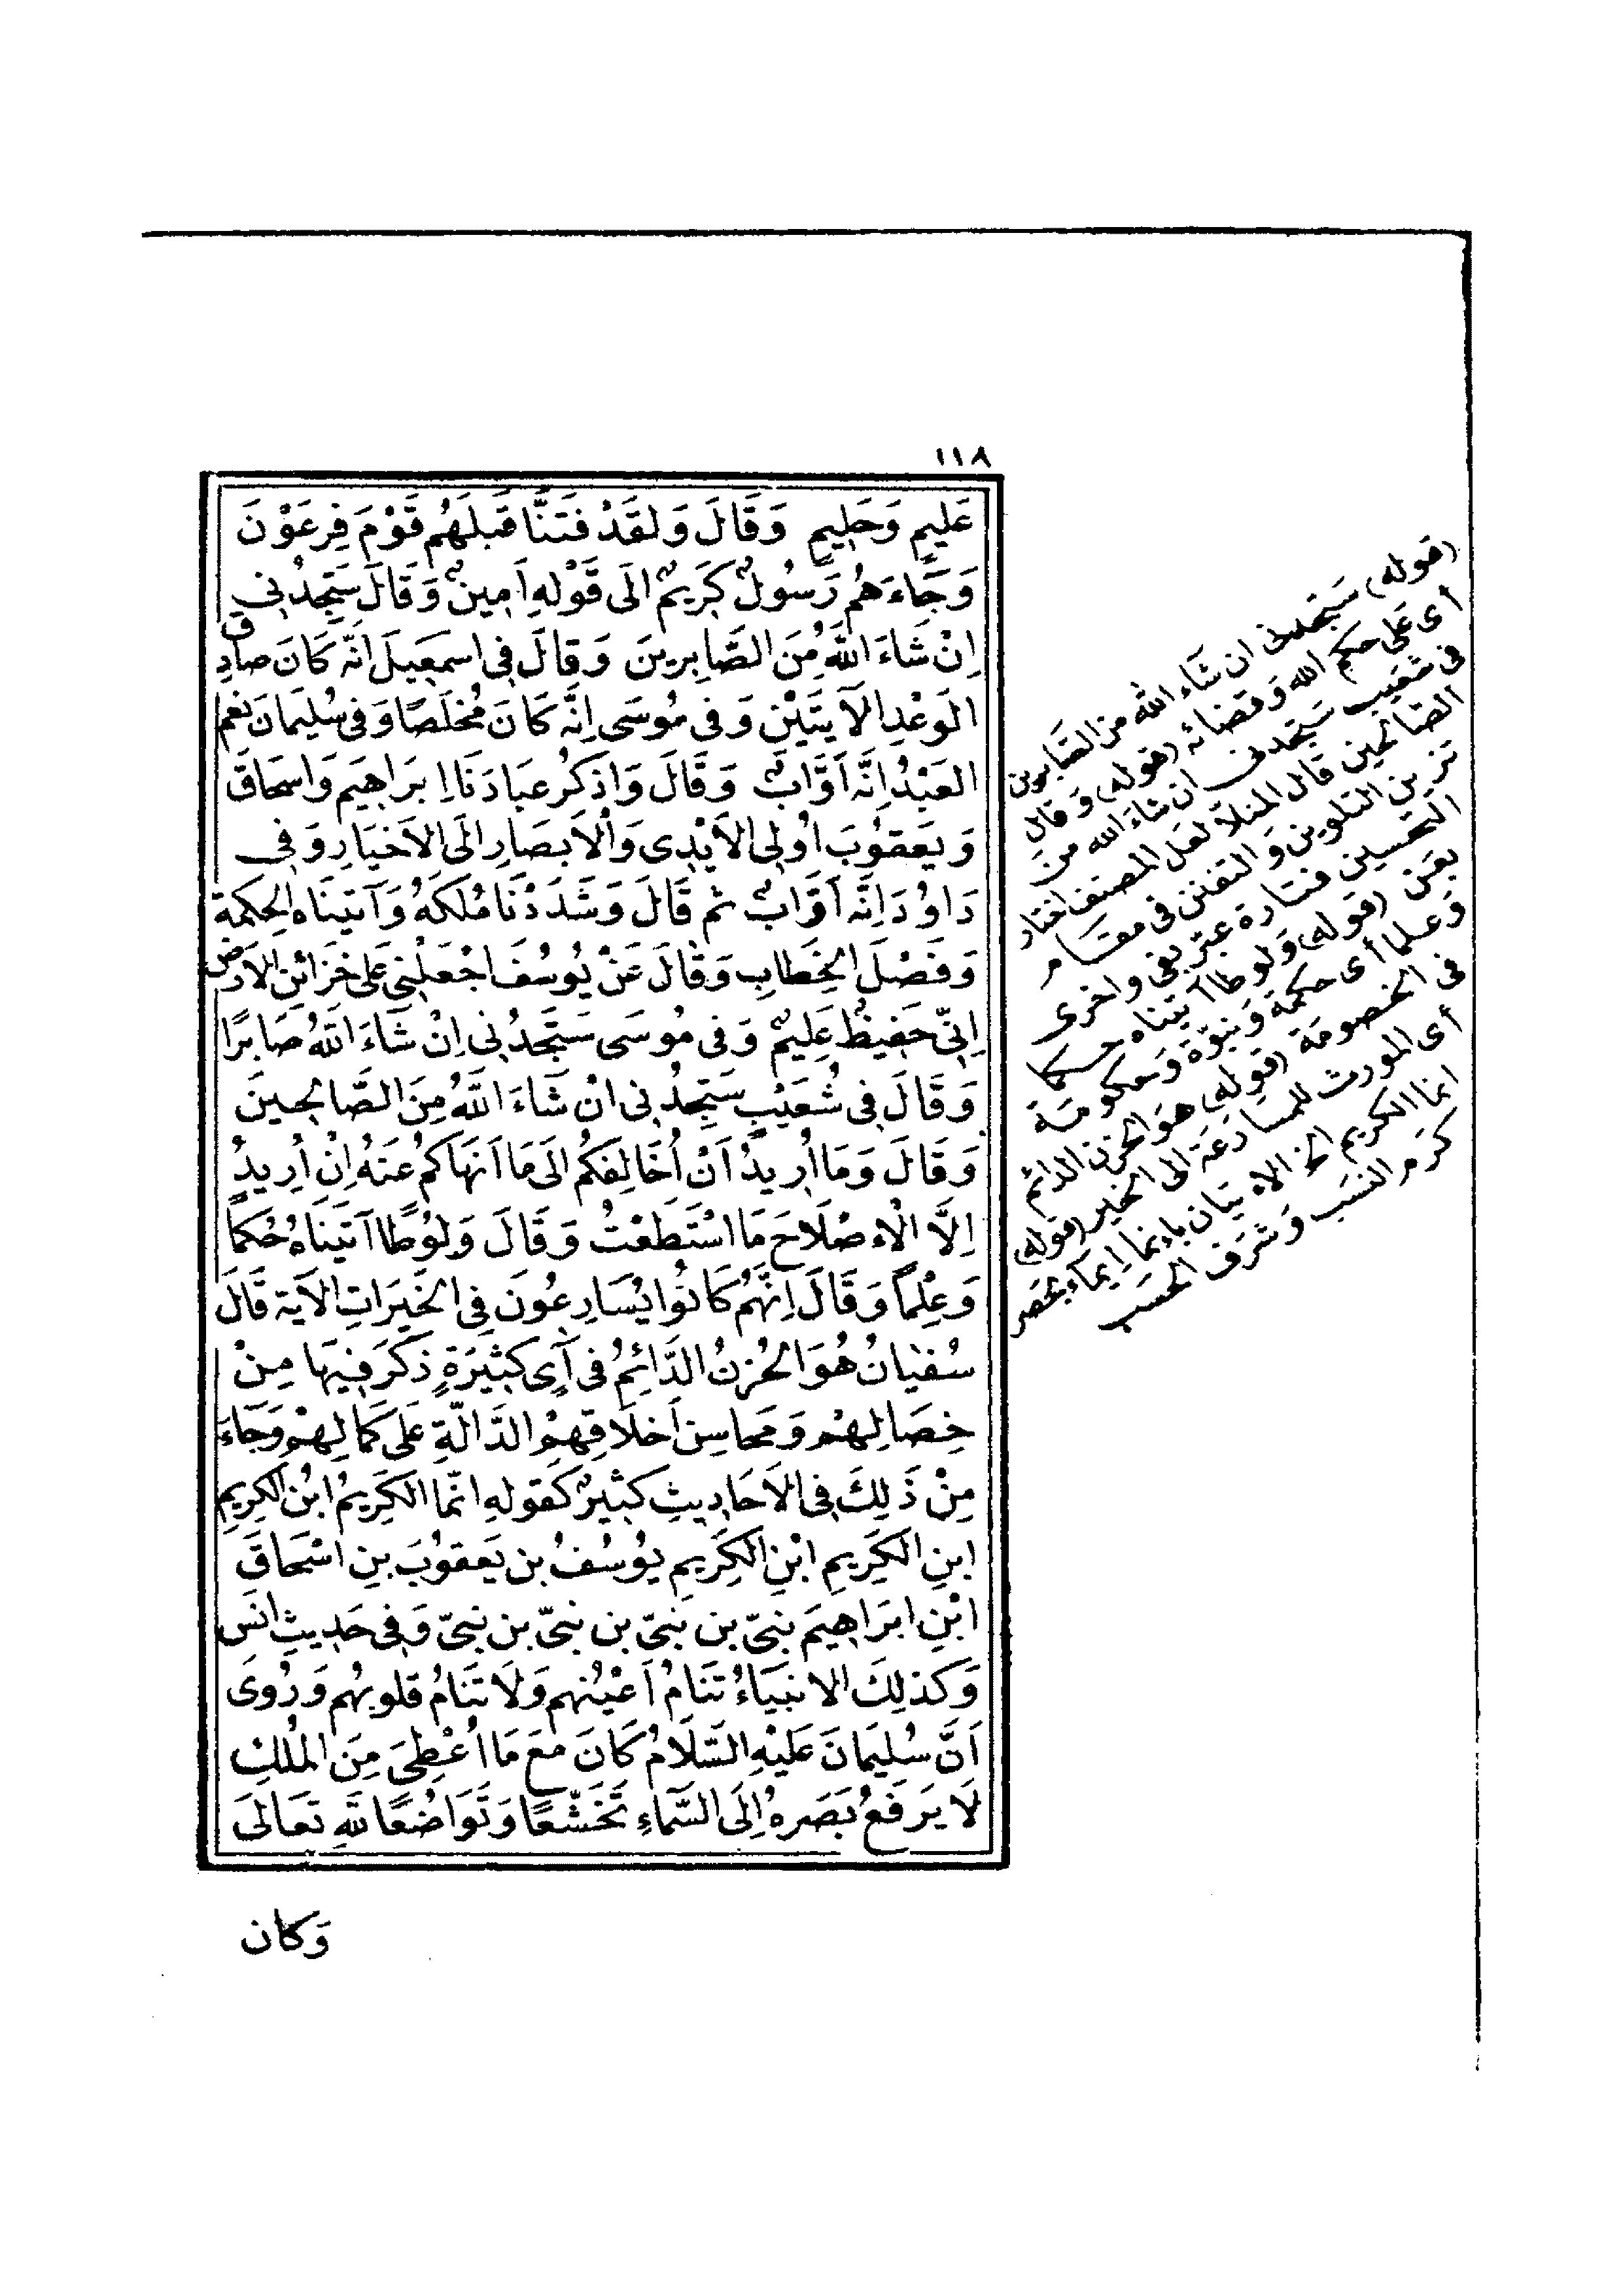 ١١٨
عَلِيمٍ وَحَلِيمٍ وَقَالَ وَلَقَدْ فَتَنَّا قَبْلَهُمْ قَوْمَ فِرْعَوْنَ
وَجَاءَهُمْ رَسُولٌ كَرِيمٌ اِلَى قَوْلِهِ اَمِينٌ وَقَالَ سَتَجِدُنِي
اِنْ شَاءَ اللهُ مِنَ الصَّابِرِينَ وَقَالَ فِى اِسمَعِيلَ اِنَّهُ كَانَ صَادِقَ
الوَعْدِ الآيَتَيْنِ وَفِى مُوسَى اِنَّهُ كَانَ مُخْلَصًا وَفِى سُلَيمَانَ نِعْمَ
العَبْدُ اِنَّهُ اَوَّابٌ وَقَالَ وَاذْكُرْ عِبَادَنَا اِبْرَاهِيمَ وَاِسحَاقَ
وَيَعقُوبَ اُولِى الاَيْدِى وَالاَبصَارِ اِلَى الاَخْيَارِ وَفِى
دَاوُدَ اِنَّهُ اَوَّابٌ ثم قَالَ وَشَدَدْنَا مُلكَهُ وَآتَينَاهُ الحِكمَةَ
وَفَصْلَ الخِطَابِ وَقَالَ عَنْ يُوسُفَ اجْعَلْنِى عَلَى خَزَائِنِ الاَرْضِ
اِنِّى حَفِيظٌ عَلِيمٌ وَفِى مُوسَى سَتَجِدُنِى اِنْ شَاءَ اللهُ صَابِرًا
وَقَالَ فِى شُعَيْبٍ سَتَجِدُنِى اِنْ شَاءَ اللهُ مِنَ الصَّالِحِينَ
وَقَالَ وَمَا اُرِيدُ اَنْ اُخَالِفَكُمْ اِلَى مَا اَنهَاكُمْ عَنهُ اِنْ اُرِيدُ
اِلَّا الْاِصْلَاحَ مَا اسْتَطَعْتُ وَقَالَ وَلُوطًا آتَيْنَاهُ حُكمًا
وَعِلْمًا وَقَالَ اِنَّهُمْ كَانُوا يُسَارِعُونَ فِى الخَيرَاتِ الآيَةَ قَالَ
سُفيَانُ هُوَ الحُزْنُ الدَّائِمُ فِى آىٍ كَثِيرَةٍ ذَكَرَ فِيهَا مِنْ
خِصَالِهِمْ وَمَحَاسِنِ اَخلَاقِهِمُ الدَّالَّةِ عَلَى كَمَالِهِمْ وَجَاءَ
مِنْ ذَلِكَ فِى الاَحَادِيثِ كَثِيرٌ كَقَولِهِ اِنَّمَا الكَرِيمُ ابْنُ الكَرِيمِ
ابنِ الكَرِيمِ ابْنِ الكَرِيمِ يُوسُفُ بن يَعقُوبَ بنِ اِسْحَاقَ
ابْنِ اِبرَاهِيمَ نَبِىّ بن نَبِىّ بن نَبِىّ بن نَبِىّ وَفِى حَدِيثِ اَنَس
وَكَذلِكَ الاَنبِيَاءُ تَنَامُ اَعْيُنُهم وَلَا تَنَامُ قُلوبُهم وَرُوىَ
اَنَّ سُلَيمَانَ عَلَيْهِ السَّلَامُ كَانَ مَعَ مَا اُعْطِىَ مِنَ المُلْكِ
لَا يَرفَعُ بَصَرهُ اِلَى السَّمَاءِ تَخَشُّعًا وَتَوَاضُعًا للهِ تَعَالَى
وَكان
(قوله) سَتجدنى ان شَاء الله من الصَّابرين
أى عَلى حكم الله وَقضائه (قوله) وَقال
فى شعَيب سَتجدنى ان شاءَ الله منَ
الصَّالحين قال المنلا لعَل المصنف اختار
تزيين التلوين وَالتفنن فى مقام
التحسين فتارة عبّر بفى واخرى
بعَن (قوله) وَلوطا آتيناه حكما
وَعلما أى حكمة وَنبوّة وَحكومة
فى الخصومَة (قوله) هوَ الحزن الدائم
أى المورث للمسَارعَة الى الخير (قوله)
انما الكريم الخ الاتيَان بانما ايمَاء بحصر
كرَم النسَب وَشرَف الحسَب